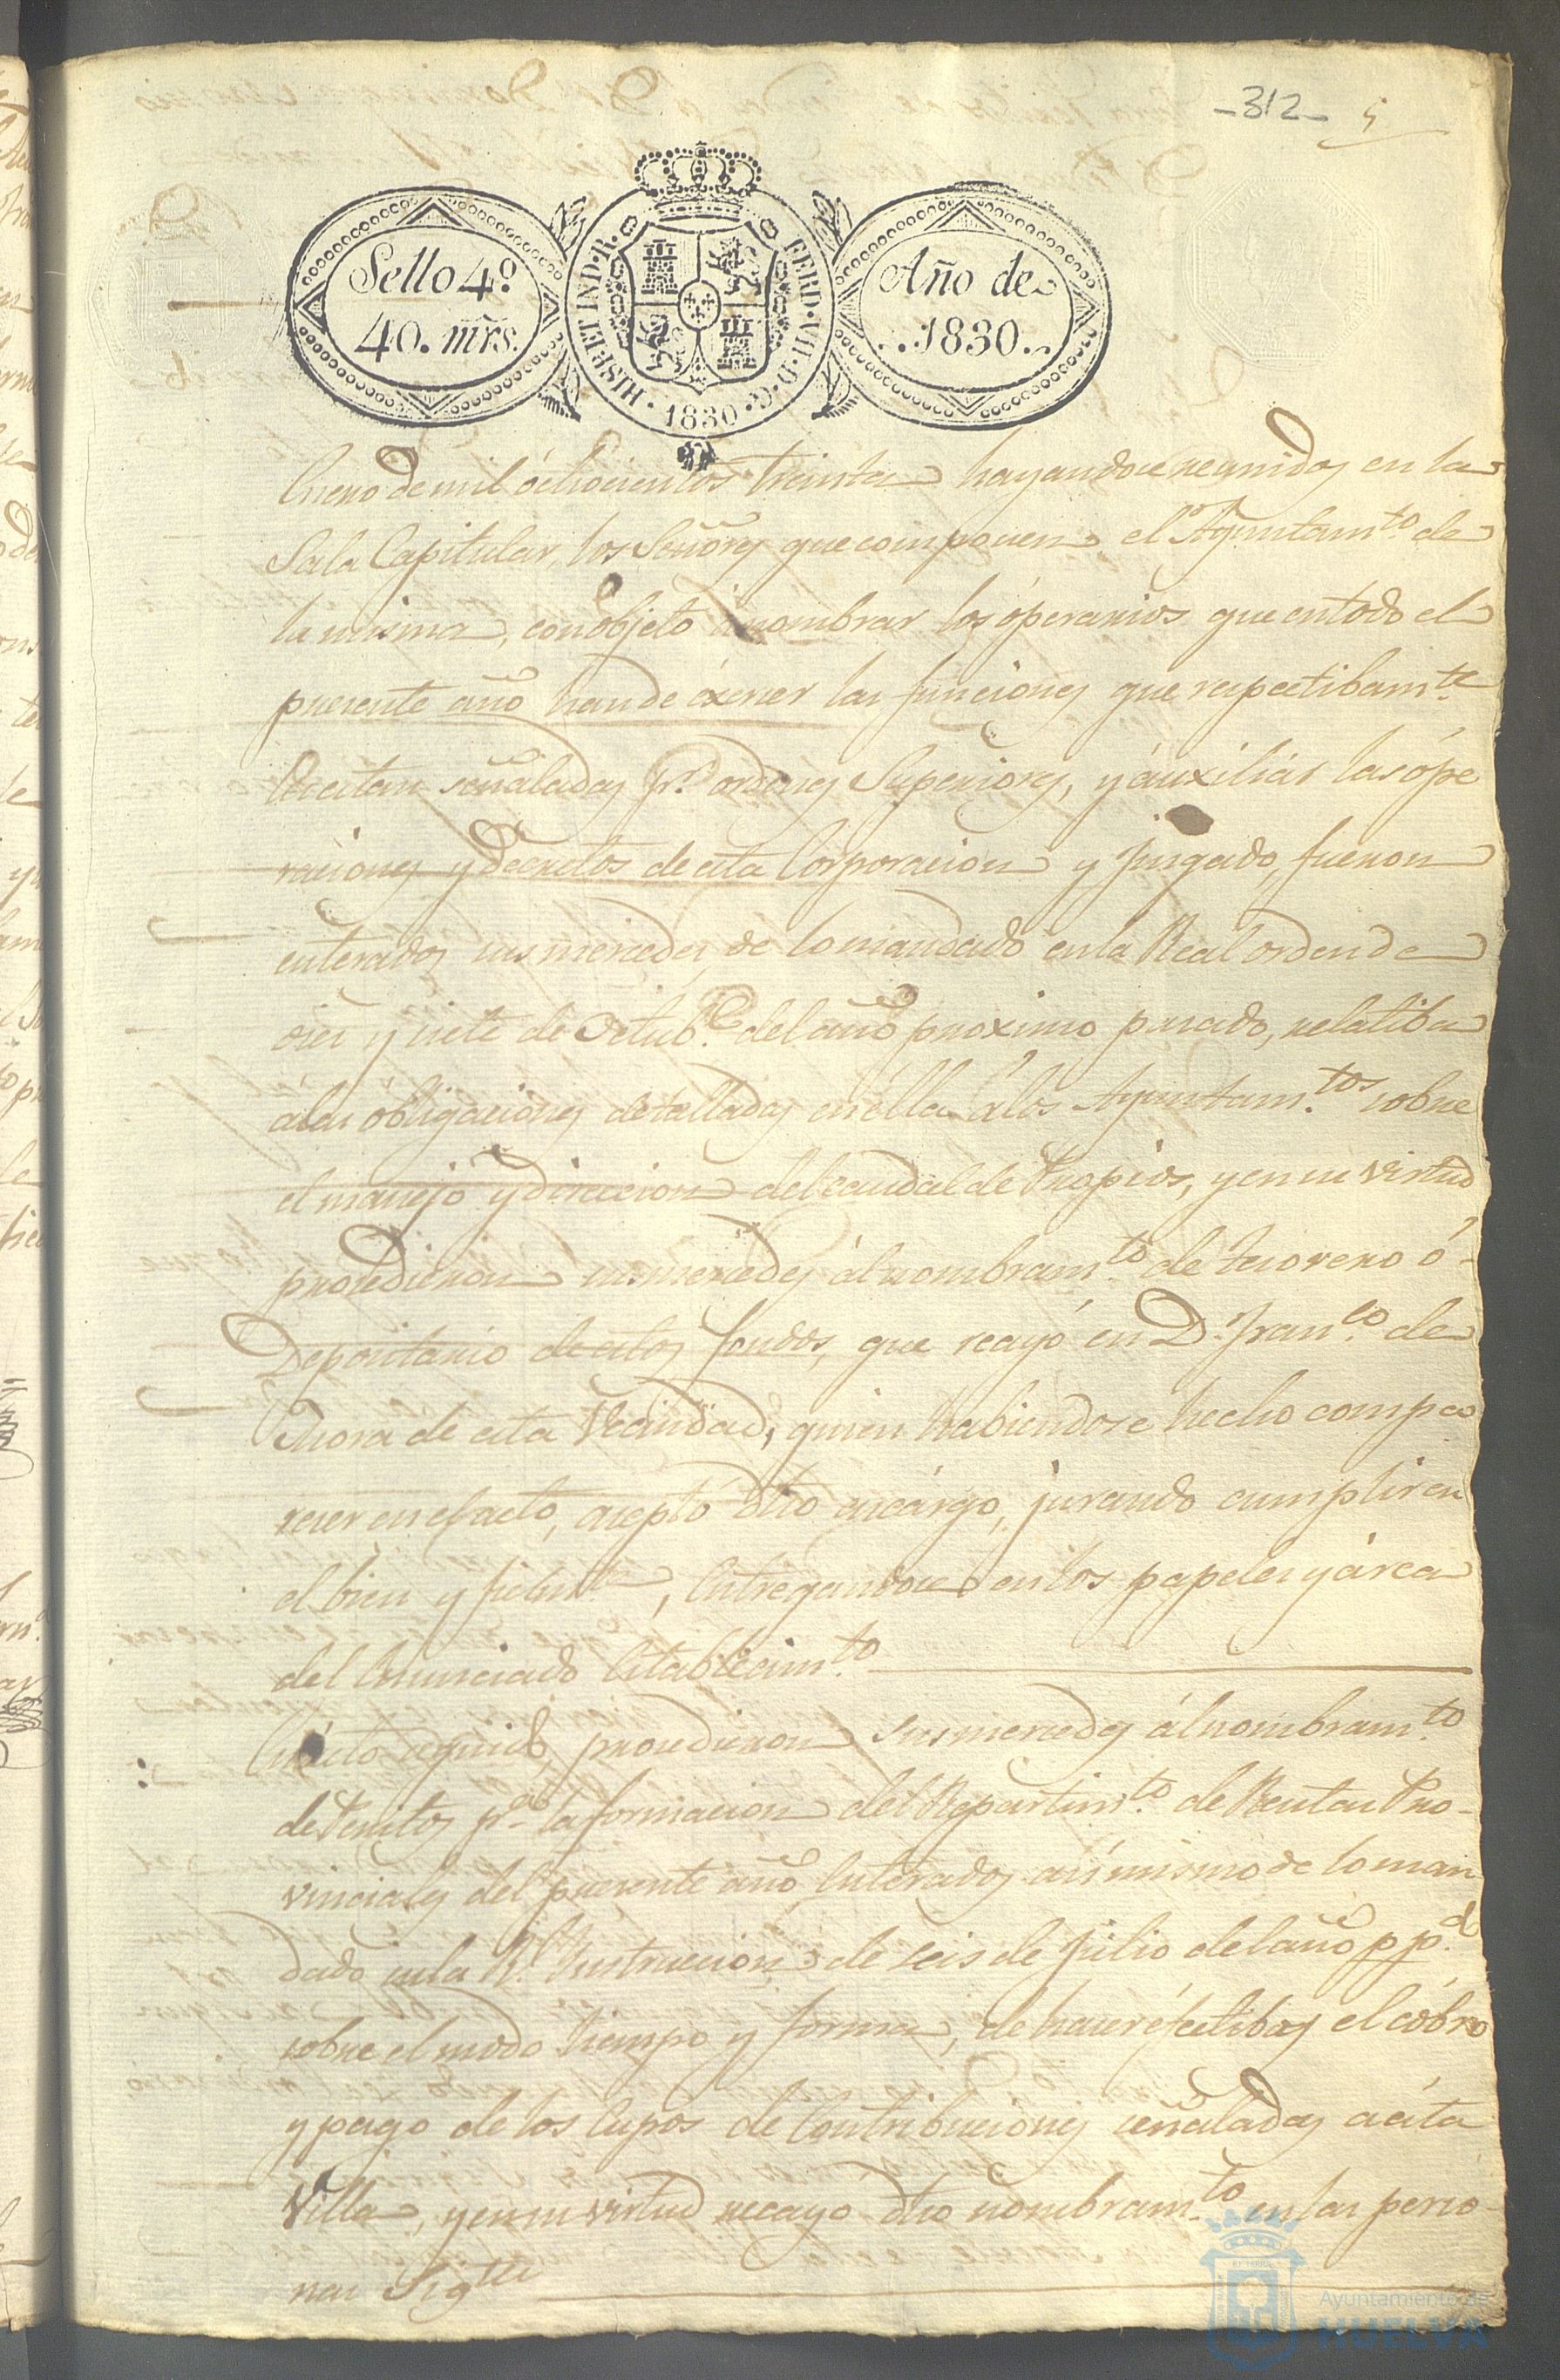 -312- 5
Sello 4º
40. mrs.
HISP. ET IND. R. FERD. VII. D. G. 1830
Año de
1830
Enero de mil óchocientos treinta hayandose reunidos en la
Sala Capitular, los Señores que componen el Ayuntam.to de
la misma, con objeto nombrar los óperarios que en todo el
presente año han de éxerser las funciones que respectibam.te
les estan señaladas p.r ordenes Superiores, y áuxiliar las ópe
raciones y Decretos de esta Corporacion y Jusgado, fueron
enterados sus mercedes de lo mandado en la Real orden de
dies y siete de Octub.e del año proximo pasado, relatiba
álas óbligaciones detalladas en élla álos Ayuntam.tos sobre
el manejo y direccion del caudal de Propios, y en su virtud
procedieron sus mercedes ál nombram.to de tesorero ó
Depositario de estos fondos, que recayó en D. Fran.co de
Mora de esta Vecindad, quien habiendose hecho compa
recer en el acto, aceptó dho encárgo, jurando cumplir en
el bien y fielm.te, entregandose en los papeles y árca
del enunciado Establecim.to
En éste seguido, procedieron sus mercedes ál nombram.to
de Peritos p.a la formacion del Repartim.to de Rentas Pro-
vinciales del presente año, Enterados así mismo de lo man
dado en la R.l Instruccion de seis de Julio del año p.p.do
sobre el modo tiempo y forma, de hacer éfectibos el cobro
y pago de los cupos de Contribuciones señalados a ésta
Villa, y en su virtud recayo dho nombram.to en las perso-
nas Sigtes
Ayuntamiento de
HUELVA